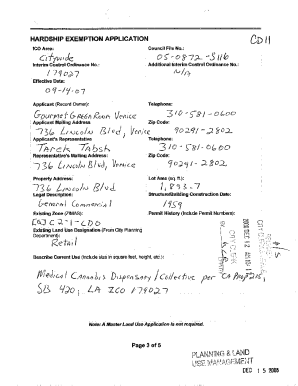 CD11
HARDSHIP EXEMPTION APPLICATION
ICO Area: Council File No.:
Citywide 05-0872-S116
Interim Control Ordinance No.: Additional Interim Control Ordinance No.:
179027 N/A
Effective Date:
09-14-07
Applicant (Record Owner): Telephone:
Gourmet Green Room Venice 310-581-0600
Applicant Mailing Address Zip Code:
736 Lincoln Blvd, Venice 90291-2802
Applicant's Representative Telephone:
Tarek Tabsh 310-581-0600
Representative's Mailing Address: Zip Code:
736 Lincoln Blvd, Venice 90291-2802
Property Address: Lot Area (sq. ft.):
736 Lincoln Blvd 1,893.7
Legal Description: Structure/Building Construction Date:
General Commercial 1959
Existing Zone (ZIMAS): Permit History (Include Permit Numbers):
C2-1-CDO
Existing Land Use Designation (From City Planning
Department):
Retail
Describe Current Use (Include size in square feet, height, etc.):
Medical Cannabis Dispensary/Collective per CA Prop 215,
SB 420, LA ICO 179027
Note: A Master Land Use Application is not required.
Page 3 of 5
PLANNING & LAND
USE MANAGEMENT
DEC 15 2008